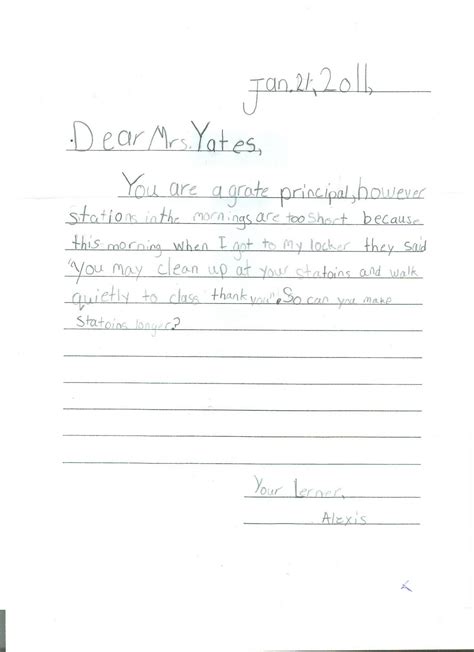 Jan. 21, 2011,
Dear Mrs. Yates,
You are a grate principal, however
stations in the mornings are too short because
this morning when I got to my locker they said
"You may clean up at your statoins and walk
quietly to class thank you". So can you make
statoins longer?
Your lerner,
Alexis